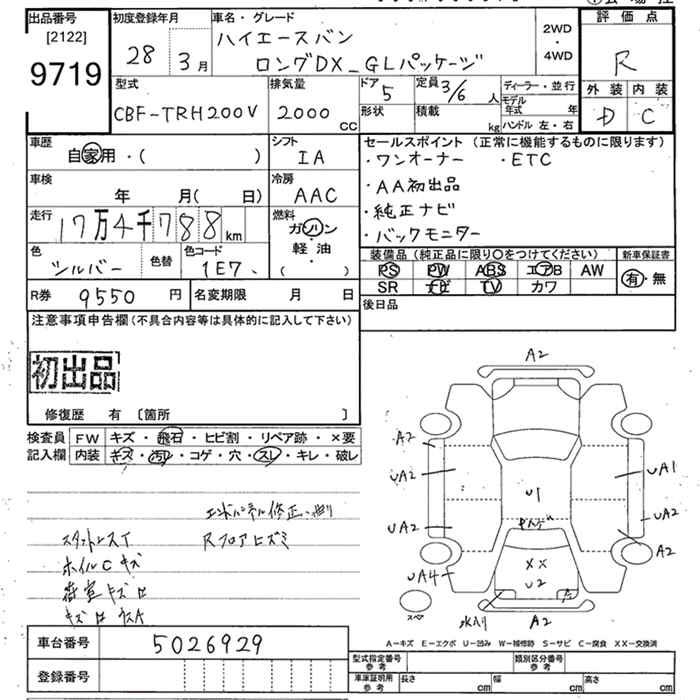 出品番号
[2122]
9719
初度登録年月
28年 3月
車名・グレード
ハイエースバン
ロングDX_GLパッケージ
2WD
・
4WD
評価点
R
外装 内装
D C
型式
CBF-TRH200V
排気量
2000 cc
ドア 5
形状
定員 3/6 人
積載 kg
ディーラー・並行
モデル年式 年
ハンドル 左・右
車歴
自家用・( )
シフト
IA
車検
年 月( 日)
冷房
AAC
走行
17万4千788 km
燃料
ガソリン
軽・油
( )
色
シルバー
色替
色コード
1E7
R券 9550 円
名変期限 月 日
セールスポイント (正常に機能するものに限ります)
・ワンオーナー ・ETC
・AA初出品
・純正ナビ
・バックモニター
装備品 (純正品に限り○をつけてください)
PS PW ABS エアB AW
SR ナビ TV カワ
新車保証書
有・無
後日品
注意事項申告欄 (不具合内容等は具体的に記入して下さい)
初出品
修復歴 有 〔箇所 〕
検査員記入欄
FW キズ・飛石・ヒビ割・リペア跡・×要
内装 キズ・汚レ・コゲ・穴・スレ・キレ・破レ
エンドパネル修正
スタットレスT Rフロアヒズミ
ホイルCキズ
荷室キズ
A2
A2
UA2
UA2
UA4
U1
UA1
UA2
A2
XX
U2
A2
スペア
A−キズ E−エクボ U−凹み W−補修跡 S−サビ C−腐食 XX−交換済
車台番号 5026929
登録番号
型式指定番号 参考
類別区分番号 参考
車庫証明用 参考
長さ cm
幅 cm
高さ cm